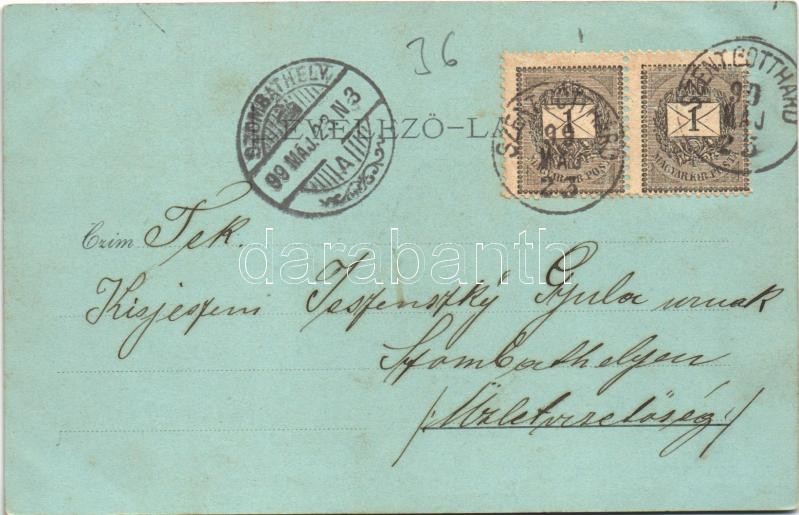 36
SZENT GOTTHARD
99 MAJ 23
SZENT GOTTHARD
99 MAJ 23
1
MAGYAR KIR. POSTA
1
MAGYAR KIR. POSTA
SZOMBATHELY
99 MÁJ. 23 N 3
A
LEVELEZŐ-LA
darabanth
Czim Tek.
Kisjeszeni Jeszenszky Gyula urnak
Szombathelyen
/: Üzletvezetőség :/